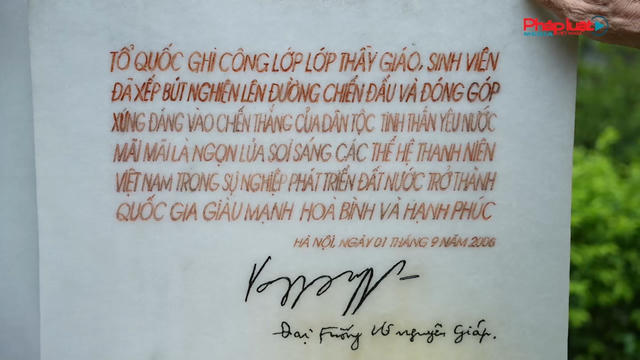 Pháp Luật
TỔ QUỐC GHI CÔNG LỚP LỚP THẦY GIÁO, SINH VIÊN
ĐÃ XẾP BÚT NGHIÊN LÊN ĐƯỜNG CHIẾN ĐẤU VÀ ĐÓNG GÓP
XỨNG ĐÁNG VÀO CHIẾN THẮNG CỦA DÂN TỘC TINH THẦN YÊU NƯỚC
MÃI MÃI LÀ NGỌN LỬA SOI SÁNG CÁC THẾ HỆ THANH NIÊN
VIỆT NAM TRONG SỰ NGHIỆP PHÁT TRIỂN ĐẤT NƯỚC TRỞ THÀNH
QUỐC GIA GIÀU MẠNH HOÀ BÌNH VÀ HẠNH PHÚC
HÀ NỘI, NGÀY 01 THÁNG 9 NĂM 2006
Đại Tướng Võ Nguyên Giáp.